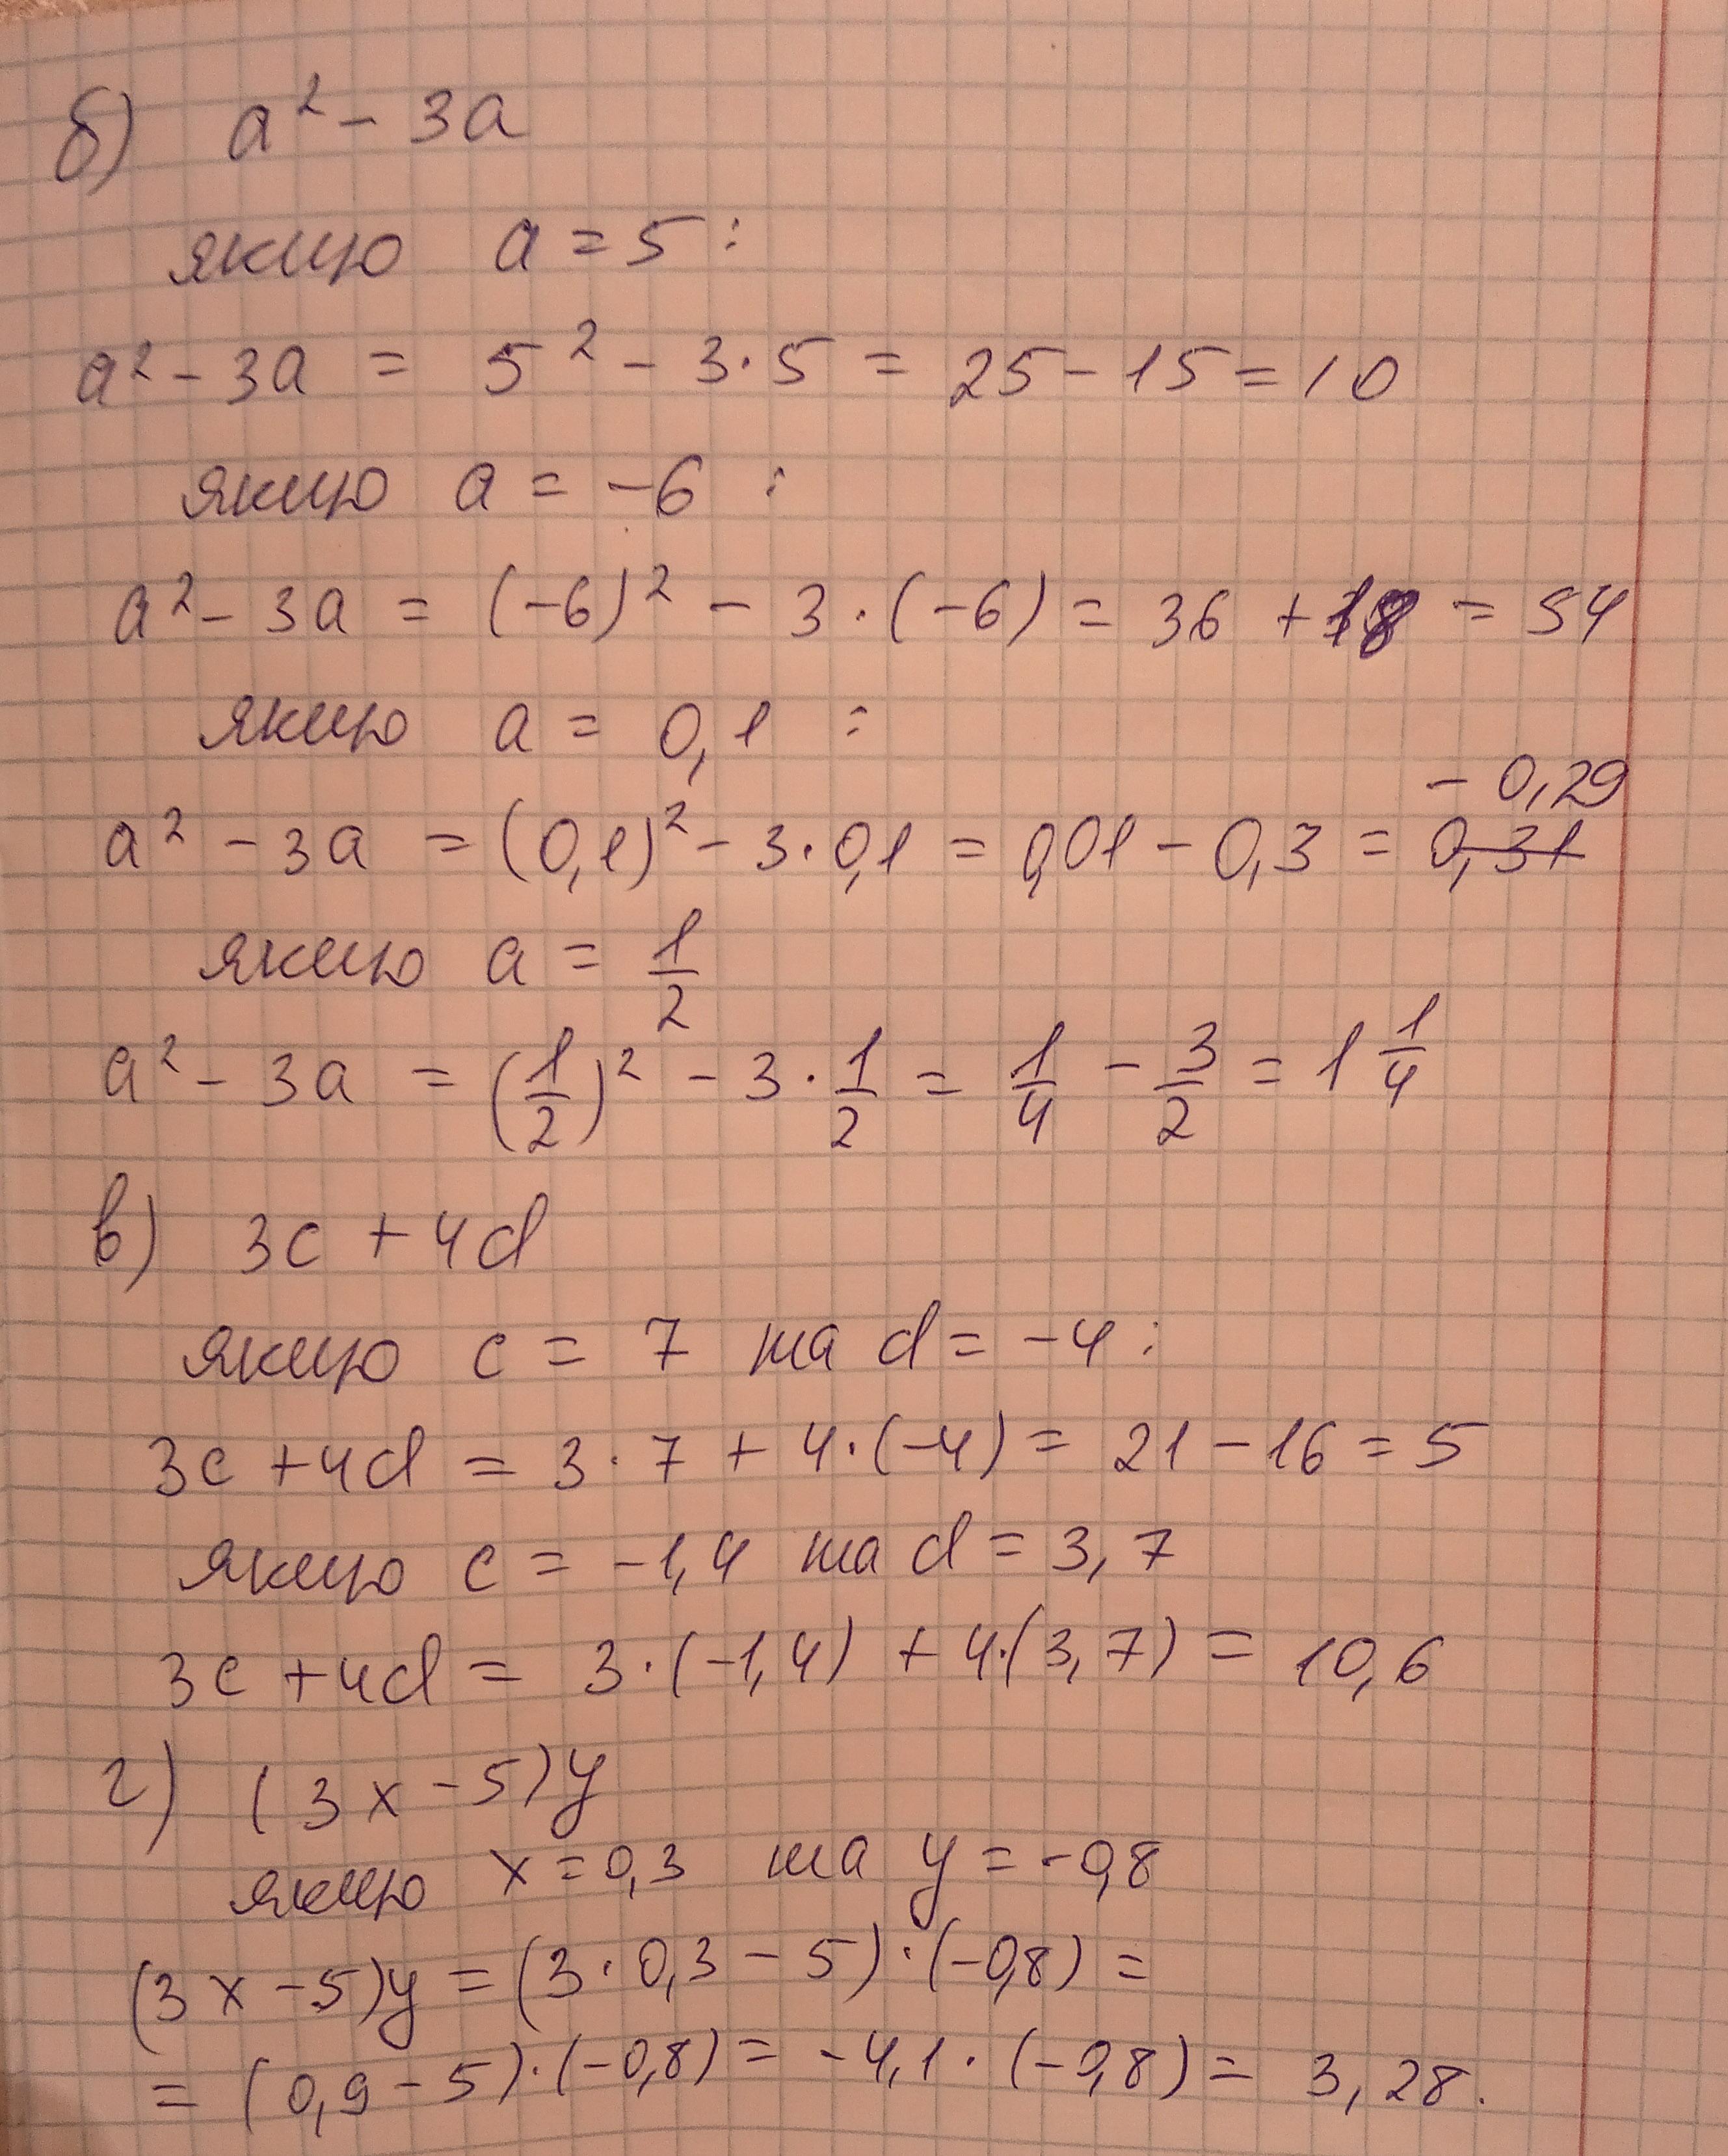 б) a² - 3a
якщо a = 5 :
a² - 3a = 5² - 3·5 = 25 - 15 = 10
якщо a = -6 :
a² - 3a = (-6)² - 3·(-6) = 36 + 18 = 54
якщо a = 0,1 :
- 0,29
a² - 3a = (0,1)² - 3·0,1 = 0,01 - 0,3 = 0,31
якщо a = 1/2
a² - 3a = (1/2)² - 3·1/2 = 1/4 - 3/2 = 1 1/4
в) 3c + 4d
якщо c = 7 та d = -4 :
3c + 4d = 3·7 + 4·(-4) = 21 - 16 = 5
якщо c = -1,4 та d = 3,7
3c + 4d = 3·(-1,4) + 4·(3,7) = 10,6
г) (3x - 5)y
якщо x = 0,3 та y = -0,8
(3x - 5)y = (3·0,3 - 5)·(-0,8) =
= (0,9 - 5)·(-0,8) = -4,1·(-0,8) = 3,28.